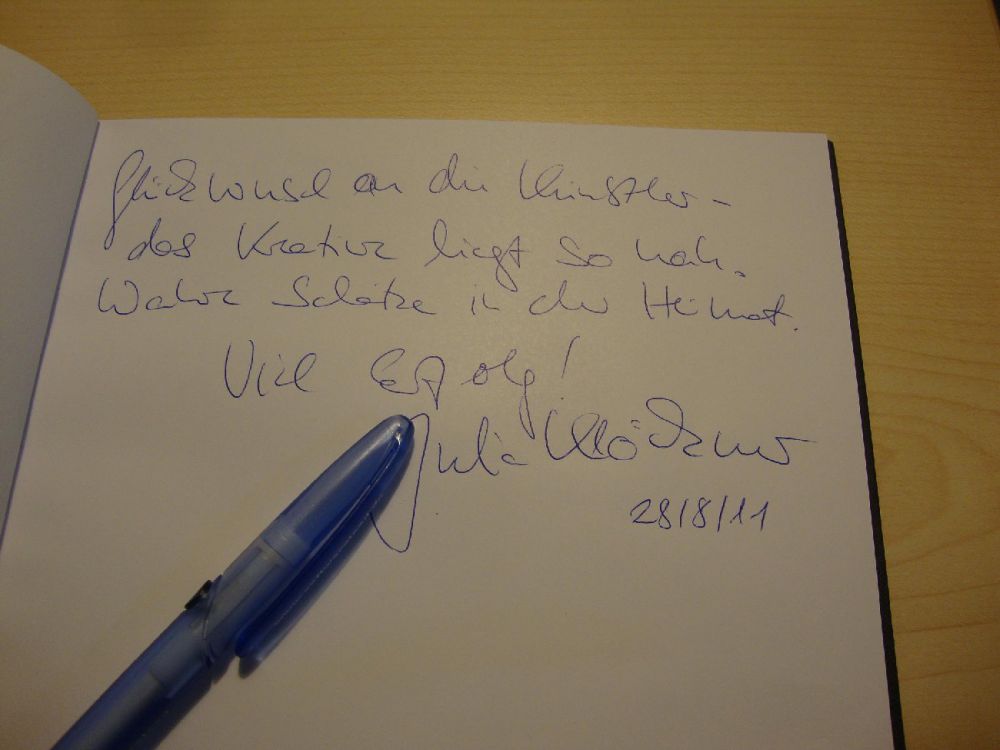 Glückwunsch an die Künstler -
das Kreative liegt so nah.
Wahre Schätze in der Heimat.
Viel Erfolg!
Julia Klöckner
28/8/11